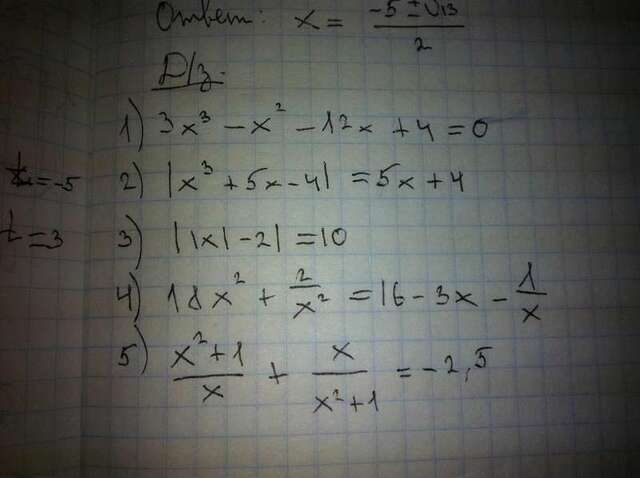 Ответ: x = (-5 ± √13)/2
Д/з.
1) 3x³ - x² - 12x + 4 = 0
t = -5
2) |x³ + 5x - 4| = 5x + 4
t = 3
3) ||x| - 2| = 10
4) 18x² + 2/x² = 16 - 3x - 1/x
5) (x² + 1)/x + x/(x² + 1) = -2,5